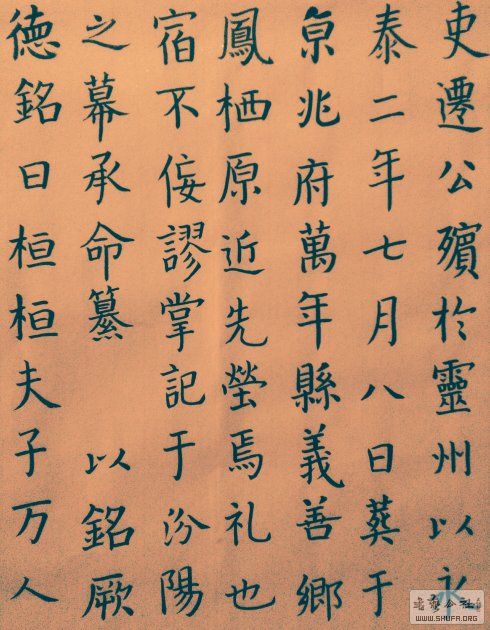 吏遷公殯於靈州以永
泰二年七月八日葬于
京兆府萬年縣義善鄉
鳳栖原近先塋焉礼也
宿不佞謬掌記于汾陽
之幕承命纂 以銘厥
德銘曰桓桓夫子万人
书法公社
WWW.SHUFA.ORG